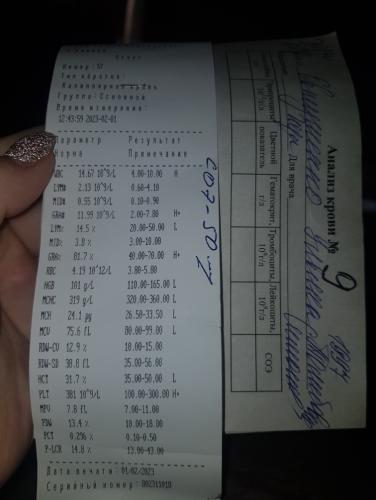 Номер: 57
Тип образца:
Капиллярная кровь
Группа: Основной
Время измерения:
12:43:59 2023-02-01
Параметр Результат
Норма Примечание
WBC 14.67 10^9/L 4.00-10.00 H
LYM# 2.13 10^9/L 0.60-4.10
MID# 0.55 10^9/L 0.10-0.90
GRA# 11.99 10^9/L 2.00-7.80 H+
LYM% 14.5 % 20.00-50.00 L
MID% 3.8 % 3.00-10.00
GRA% 81.7 % 40.00-70.00 H+
RBC 4.19 10^12/L 3.80-5.80
HGB 101 g/L 110.00-165.00 L
MCHC 319 g/L 320.00-360.00 L
MCH 24.1 pg 26.50-33.50 L
MCV 75.6 fL 80.00-99.00 L
RDW-CV 12.9 % 10.00-15.00
RDW-SD 38.8 fL 35.00-56.00
HCT 31.7 % 35.00-50.00 L
PLT 381 10^9/L 100.00-300.00 H+
MPV 7.8 fL 7.00-11.00
PDW 13.4 % 10.00-18.00
PCT 0.296 % 0.10-0.50
P-LCR 14.8 % 13.00-43.00
Дата печати: 01/02/2023
Серийный номер:
СОЭ-50
Анализ крови № 9
Для врача
Цветной показатель
Гематокрит, г/л
Тромбоциты, 10⁹г/л
Лейкоциты, 10⁹г/л
СОЭ